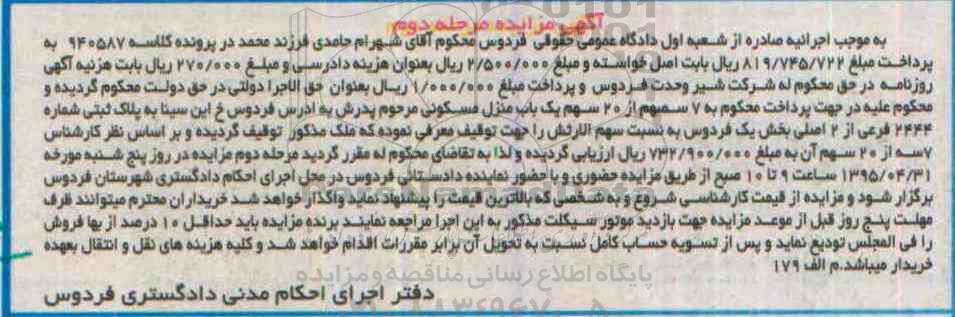 آگهی مزایده مرحله دوم
به موجب اجرائیه صادره از شعبه اول دادگاه عمومی حقوقی فردوس محکوم آقای شهرام حامدی فرزند محمد در پرونده کلاسه ۹۴۰۵۸۷ به
پرداخت مبلغ ۸۱۹/۷۴۵/۷۲۲ ریال بابت اصل خواسته و مبلغ ۲/۵۰۰/۰۰۰ ریال بعنوان هزینه دادرسی و مبلغ ۲۷۰/۰۰۰ ریال بابت هزنیه آگهی
روزنامه در حق محکوم له شرکت شیر وحدت فردوس و پرداخت مبلغ ۱/۰۰۰/۰۰۰ ریال بعنوان حق الاجرا دولتی در حق دولت محکوم گردیده و
محکوم علیه در جهت پرداخت محکوم به ۷ سهم از ۲۰ سهم یک باب منزل مسکونی مرحوم پدرش به ادرس فردوس خ ابن سینا به پلاک ثبتی شماره
۲۴۴۴ فرعی از ۲ اصلی بخش یک فردوس به نسبت سهم الارثش را جهت توقیف معرفی نموده که ملک مذکور توقیف گردیده و بر اساس نظر کارشناس
۷سه از ۲۰ سهم آن به مبلغ ۷۳۲/۹۰۰/۰۰۰ ریال ارزیابی گردیده و لذا به تقاضای محکوم له مقرر گردید مرحله دوم مزایده در روز پنج شنبه مورخه
۱۳۹۵/۰۴/۳۱ ساعت ۹ تا ۱۰ صبح از طریق مزایده حضوری و با حضور نماینده دادستانی فردوس در محل اجرای احکام دادگستری شهرستان فردوس
برگزار شود و مزایده از قیمت کارشناسی شروع و به شخصی که بالاترین قیمت را پیشنهاد نماید واگذار خواهد شد خریداران محترم میتوانند ظرف
مهلت پنج روز قبل از موعد مزایده جهت بازدید موتور سیکلت مذکور به این اجرا مراجعه نمایند برنده مزایده باید حداقل ۱۰ درصد از بها فروش
را فی المجلس تودیع نماید و پس از تسویه حساب کامل نسبت به تحویل آن برابر مقررات اقدام خواهد شد و کلیه هزینه های نقل و انتقال بعهده
خریدار میباشد.م الف ۱۷۹
پایگاه اطلاع رسانی مناقصه و مزایده
دفتر اجرای احکام مدنی دادگستری فردوس